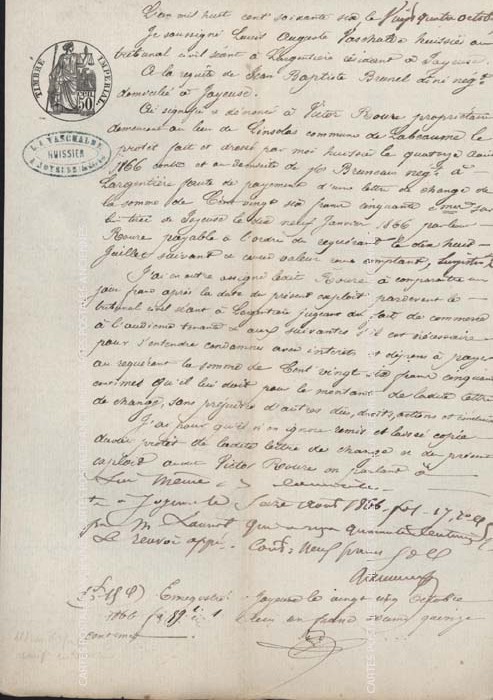 L'an mil huit cent soixante six le Vingt quatre octobre
Je soussigné Louis Auguste Vaschalde huissier au
tribunal civil séant à Largentière résidant à Joyeuse.
A la requête de Jean Baptiste Brunel négt
domicilié à Joyeuse.
Ai signifié & dénoncé à Victor Roure propriétaire
demeurant au lieu de commune de Labeaume le
protêt fait et dressé par moi huissier le quatorze aout
1866 dument au domicile de Bruneau négt à
Largentière faute de payement d'une lettre de change de
la somme de Cent vingt six francs cinquante cmes sur
lui tirée de Joyeuse le dix neuf Janvier 1866 par
Roure payable à l'ordre du requérant le dix huit
Juillet suivant valeur reçue comptant,
J'ai en outre assigné ledit Roure à comparaitre au
jour franc après la date du présent exploit pardevant le
tribunal civil séant à Largentière jugeant du fait de commerce
à l'audience tenant & aux suivantes s'il est nécessaire
pour s'entendre condamner avec intérêts et dépens à payer
au requérant la somme de Cent vingt six francs cinquante
centimes qu'il lui doit pour le montant de ladite lettre
de change, sans préjudice d'autres dus, droits, actions et
J'ai pour qu'il n'en ignore remis et laissé copie
dudit protêt de ladite lettre de change & du présent
exploit audit Victor Roure en parlant à
Lui même
à Joyeuse le Seize Aout 1866 f° 17
par M. Laurent qui a reçu quarante centimes
Le renvoi appé. Cout: Neuf francs
Enregistré à Joyeuse le vingt cinq Octobre
1866 f° 89 c. 1 reçu un franc quinze
centimes
TIMBRE IMPERIAL
50
L. A. VASCHALDE
HUISSIER
A JOYEUSE